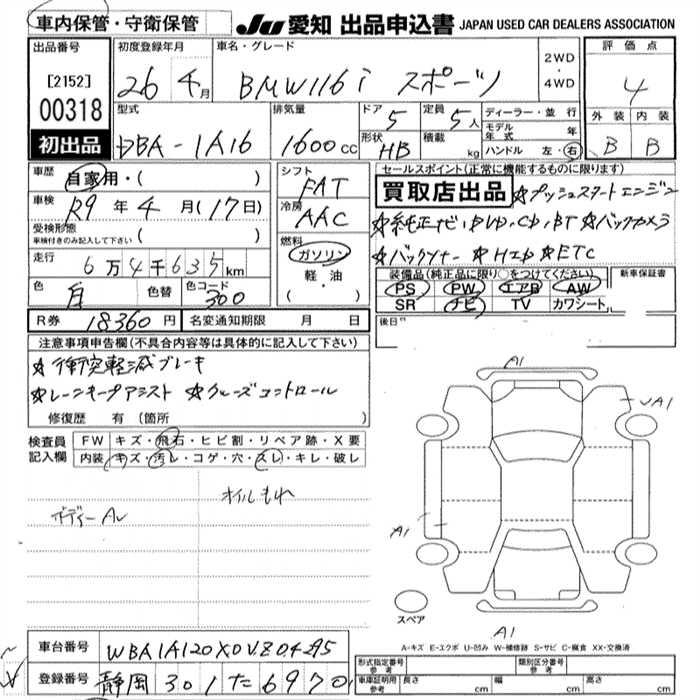 車内保管・守衛保管 JU 愛知 出品申込書 JAPAN USED CAR DEALERS ASSOCIATION
出品番号 [2152] 00318 初出品
初度登録年月 26 年 4月
車名・グレード BMW116i スポーツ
2WD・4WD
評価点 4
外装 B 内装 B
型式 DBA-1A16
排気量 1600cc
ドア 5 定員 5人
形状 HB 積載 kg
ディーラー・並行
モデル年式 年
ハンドル 左・右
車歴 自家用・( )
車検 R9年4月(17日)
受検形態 車検付きのみ記入して下さい ( )
走行 6万4千635km
色 白 色替 色コード 300
シフト FAT
冷房 AAC
燃料 ガソリン 軽・油 ・( )
セールスポイント(正常に機能するものに限ります)
買取店出品 ☆プッシュスタートエンジン
☆純正ナビ ・CD・BT ☆バックカメラ
☆バックソナー ☆HID ☆ETC
装備品(純正品に限り○をつけてください) 新車保証書
PS PW エアB AW
SR ナビ TV カワシート
R券 18360円 名変通知期限 月 日
後日
注意事項申告欄(不具合内容等は具体的に記入して下さい)
☆衝突軽減ブレーキ
☆レーンキープアシスト ☆クルーズコントロール
修復歴 有 (箇所 )
検査員記入欄 FW キズ・飛石・ヒビ割・リペア跡・X要
内装 キズ・汚レ・コゲ・穴・スレ・キレ・破レ
オイルもれ
ボディーA
A1
A1
A1
A1
スペア
A-キズ E-エクボ U-凹み W-補修跡 S-サビ C-腐食 XX-交換済
車台番号 WBA1A120X0VZ04295
登録番号 静岡 301 た 6970
形式指定番号 参考 類別区分番号 参考
車庫証明用 参考 長さ cm 幅 cm 高さ cm